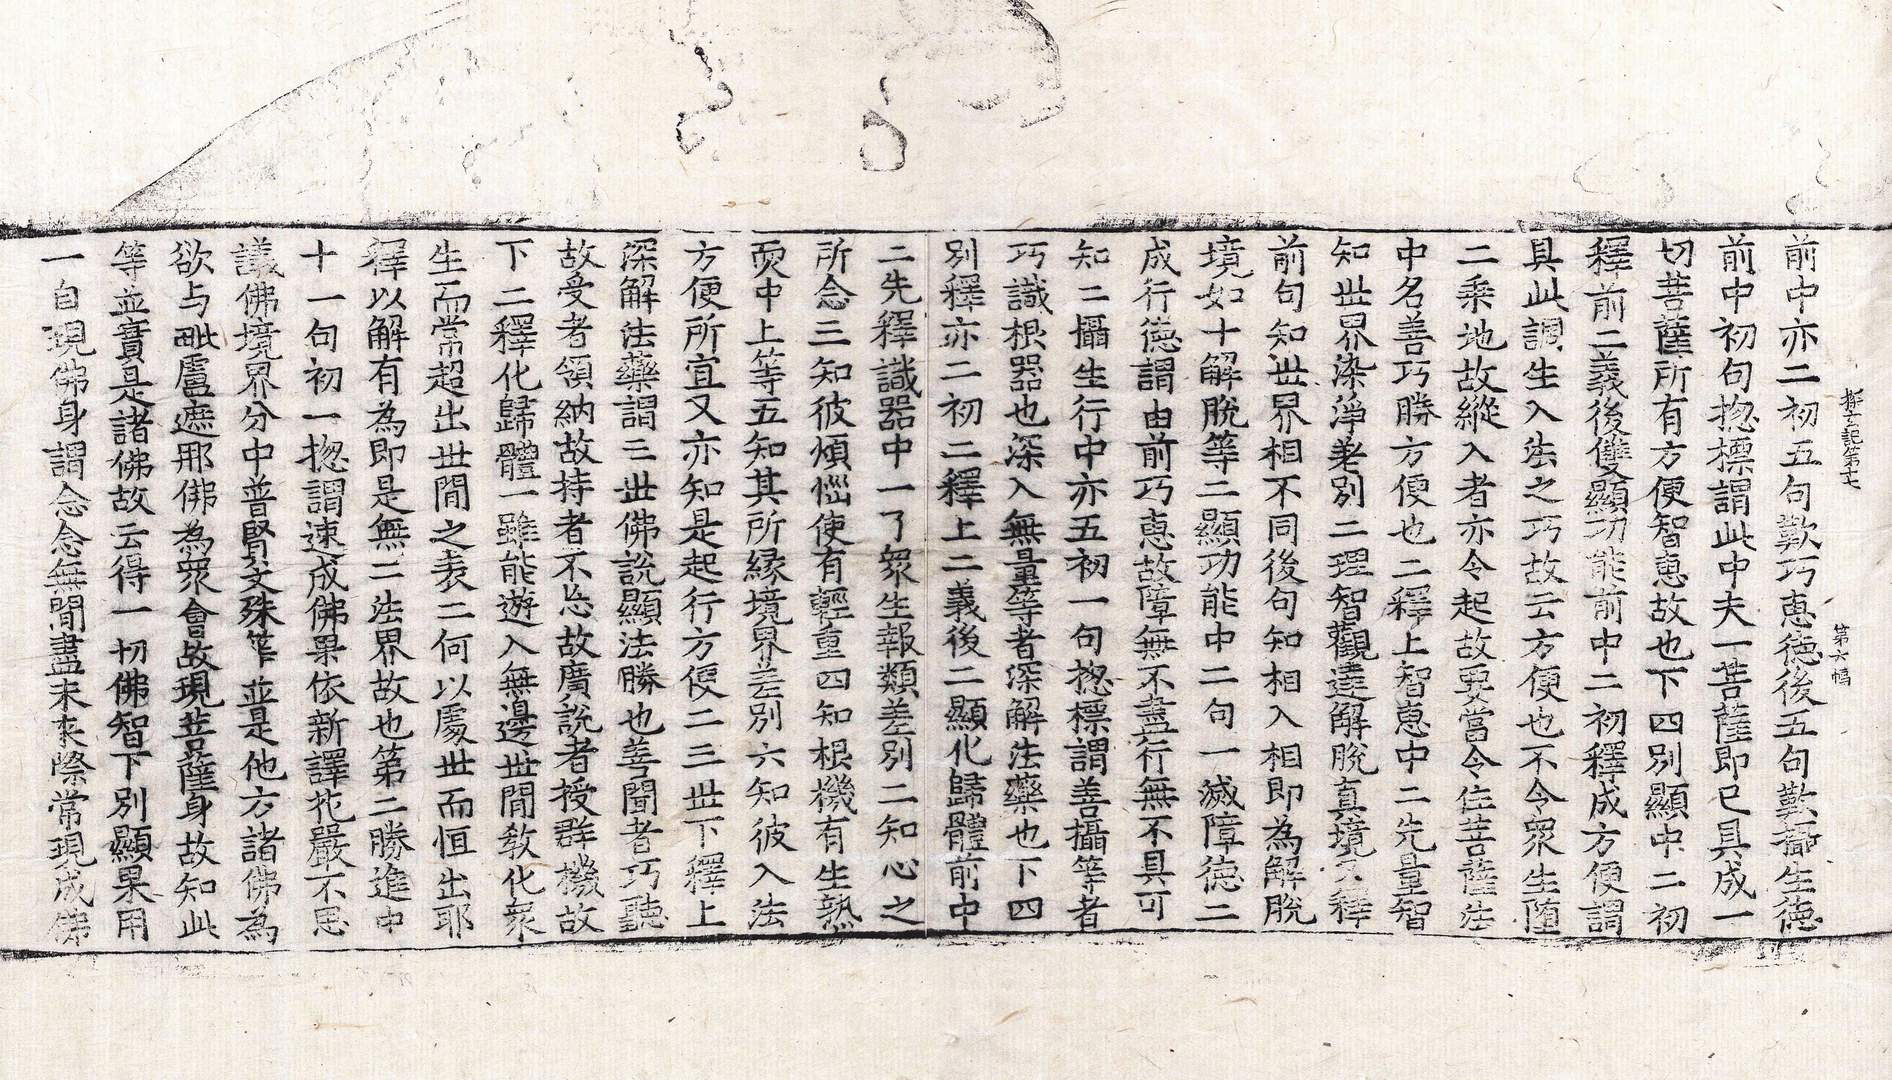 探玄記第十七
第六幅
前中亦二初五句歎巧恵徳後五句歎攝生徳
前中初句揔標謂此中夫一菩薩即已具成一
切菩薩所有方便智恵故也下四別顯中二初
釋前二義後雙顯功能前中二初釋成方便謂
具此調生入法之巧故云方便也不令衆生堕
二乘地故縱入者亦令起故要當令住菩薩法
中名善巧勝方便也二釋上智恵中二先量智
知世界染淨差別二理智觀達解脫真境又釋
前句知世界相不同後句知相入相即為解脫
境如十解脫等二顯功能中二句一滅障徳二
成行徳謂由前巧恵故障無不盡行無不具可
知二攝生行中亦五初一句揔標謂善攝等者
巧識根器也深入無量等者深解法藥也下四
別釋亦二初二釋上二義後二顯化歸體前中
二先釋識器中一了衆生報類差別二知心之
所念三知彼煩惱使有輕重四知根機有生熟
耎中上等五知其所緣境界差別六知彼入法
方便所宜又亦知是起行方便二三世下釋上
深解法藥謂三世佛說顯法勝也善聞者巧聽
故受者領納故持者不忘故廣說者授群機故
下二釋化歸體一雖能遊入無邊世間教化衆
生而常超出世間之表二何以處世而恒出耶
釋以解有為即是無二法界故也第二勝進中
十一句初一揔謂速成佛果依新譯花嚴不思
議佛境界分中普賢文殊等並是他方諸佛為
欲与毗盧遮那佛為眾會故現菩薩身故知此
等並實是諸佛故云得一切佛智下別顯果用
一自現佛身謂念念無間盡未來際常現成佛